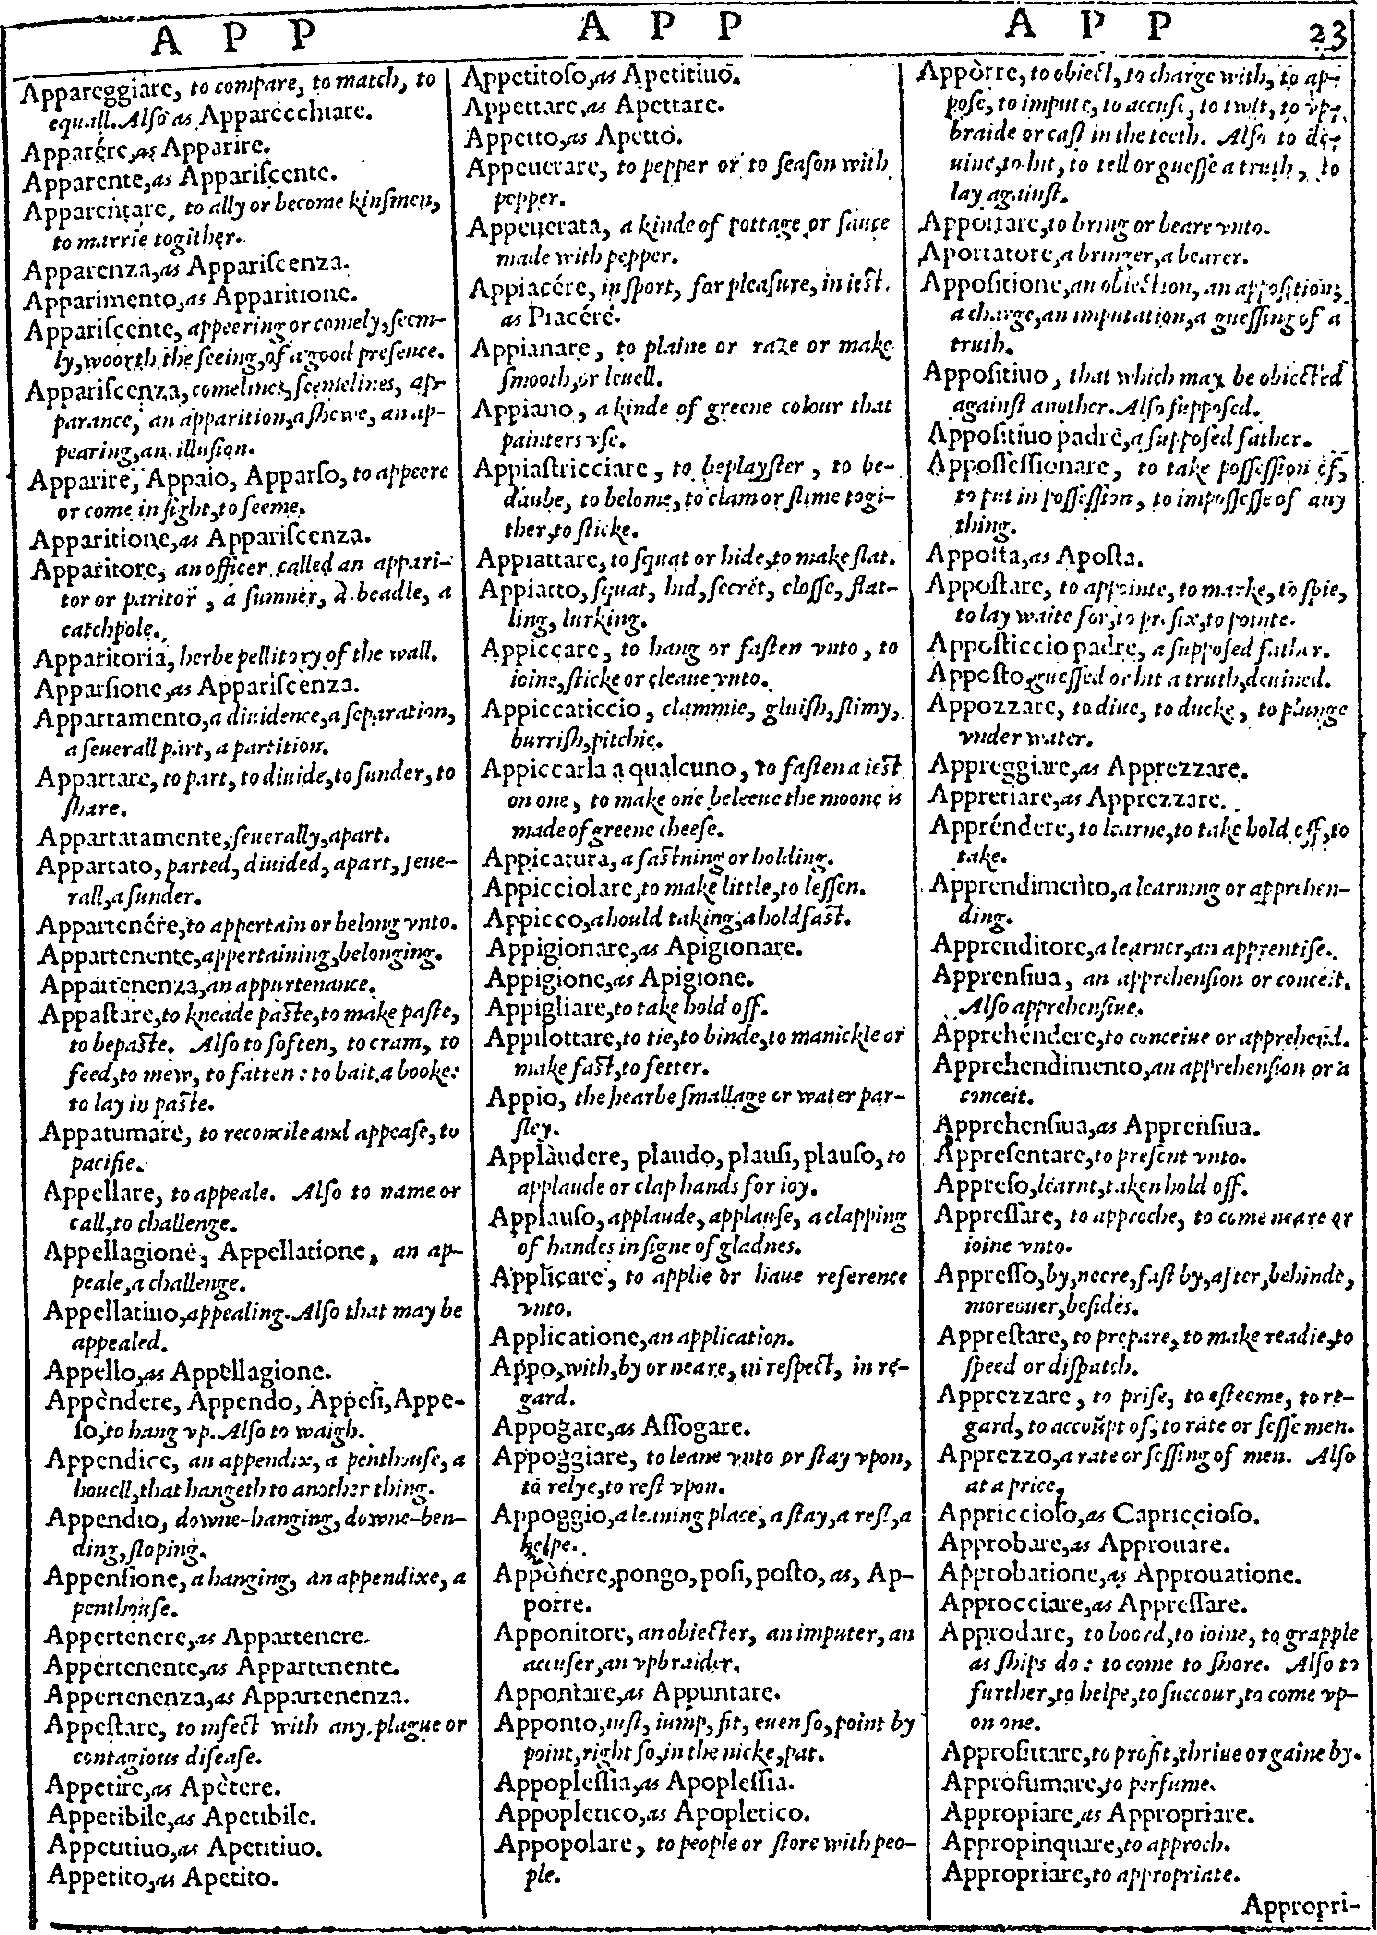 A P P
A P P
A P P
23
Appareggiare, to compare, to match, to
equall. Also as Apparecchiare.
Apparére, as Apparire.
Apparente, as Appariſcente.
Apparentare, to ally or become kinſmen,
to marrie togither.
Apparenza, as Appariſcenza.
Apparimento, as Apparitione.
Appariſcente, appeering or comely, ſeem-
ly, woorth the ſeeing, of a good preſence.
Appariſcenza, comelines, ſeemelines, ap-
parance, an apparition, a ſhewe, an ap-
pearing, an illuſion.
Apparire, Appaio, Apparſo, to appeere
or come in ſight, to ſeeme.
Apparitione, as Appariſcenza.
Apparitore, an officer called an appari-
tor or paritor, a ſumner, a beadle, a
catchpole.
Apparitoria, herbe pellitory of the wall.
Apparſione, as Appariſcenza.
Appartamento, a diuidence, a ſeparation,
a ſeuerall part, a partition.
Appartare, to part, to diuide, to ſunder, to
ſhare.
Appartatamente, ſeuerally, apart.
Appartato, parted, diuided, apart, ſeue-
rall, a ſunder.
Appartenére, to appertain or belong vnto.
Appartenente, appertaining, belonging.
Appartenenza, an appurtenance.
Appaſtare, to kneade paſte, to make paſte,
to bepaſte. Alſo to ſoften, to cram, to
feed, to mew, to fatten: to bait a hooke:
to lay in paſte.
Appatumare, to reconcile and appeaſe, to
pacifie.
Appellare, to appeale. Alſo to name or
call, to challenge.
Appellagione, Appellatione, an ap-
peale, a challenge.
Appellatiuo, appealing. Alſo that may be
appealed.
Appello, as Appellagione.
Appèndere, Appendo, Appeſi, Appe-
ſo, to hang vp. Alſo to waigh.
Appendice, an appendix, a penthouſe, a
houell, that hangeth to another thing.
Appendio, downe-hanging, downe-ben-
ding, ſloping.
Appenſione, a hanging, an appendixe, a
penthouſe.
Appertenere, as Appartenere.
Appertenente, as Appartenente.
Appertenenza, as Appartenenza.
Appeſtare, to infect with any plague or
contagious diſeaſe.
Appetire, as Apètere.
Appetibile, as Apetibile.
Appetitiuo, as Apetitiuo.
Appetito, as Apetito.
Appetitoſo, as Apetitiuo.
Appettare, as Apettare.
Appetto, as Apetto.
Appeuerare, to pepper or to ſeaſon with
pepper.
Appeuerata, a kinde of pottage or ſauce
made with pepper.
Appiacére, in ſport, for pleaſure, in ieſt.
as Piacére.
Appianare, to plaine or raze or make
ſmooth, or leuell.
Appiano, a kinde of greene colour that
painters vſe.
Appiaſtricciare, to beplayſter, to be-
daube, to belome, to clam or ſlime togi-
ther, to ſticke.
Appiattare, to ſquat or hide, to make flat.
Appiatto, ſquat, hid, ſecret, cloſſe, flat-
ling, lurking.
Appiccare, to hang or faſten vnto, to
ioine, ſticke or cleaue vnto.
Appiccaticcio, clammie, gluiſh, ſlimy,
burriſh, pitchie.
Appiccarla a qualcuno, to faſten a ieſt
on one, to make one beleeue the moone is
made of greene cheeſe.
Appicatura, a faſtning or holding.
Appicciolare, to make little, to leſſen.
Appicco, a hould taking, a holdfaſt.
Appigionare, as Apigionare.
Appigione, as Apigione.
Appigliare, to take hold off.
Appilottare, to tie, to binde, to manickle or
make faſt, to fetter.
Appio, the hearbe ſmallage or water par-
ſley.
Applàudere, plaudo, plauſi, plauſo, to
applaude or clap hands for ioy.
Applauſo, applaude, applauſe, a clapping
of handes in ſigne of gladnes.
Applicare, to applie or haue reference
vnto.
Applicatione, an application.
Appo, with, by or neare, in reſpect, in re-
gard.
Appogare, as Aſſogare.
Appoggiare, to leane vnto or ſtay vpon,
to relye, to reſt vpon.
Appoggio, a leaning place, a ſtay, a reſt, a
helpe.
Appònere, pongo, poſi, poſto, as, Ap-
porre.
Apponitore, an obiecter, an imputer, an
accuſer, an vpbraider.
Appontare, as Appuntare.
Apponto, iuſt, iump, fit, euen ſo, point by
point, right ſo, in the nicke, pat.
Appopleſſia, as Apopleſſia.
Appopletico, as Apopletico.
Appopolare, to people or ſtore with peo-
ple.
Appòrre, to obiect, to charge with, to ap-
poſe, to impute, to accuſe, to twit, to vp-
braide or caſt in the teeth. Alſo to de-
uine, to hit, to tell or gueſſe a truth, to
lay againſt.
Apportare, to bring or beare vnto.
Aportatore, a bringer, a bearer.
Appoſitione, an obiection, an appoſition,
a charge, an imputation, a gueſſing of a
truth.
Appoſitiuo, that which may be obiected
againſt another. Alſo ſuppoſed.
Appoſitiuo padre, a ſuppoſed father.
Appoſſeſſionare, to take poſſeſſion of,
to put in poſſeſſion, to impoſſeſſe of any
thing.
Appoſta, as Apoſta.
Appoſtare, to appointe, to marke, to ſpie,
to lay waite for, to prefix, to pointe.
Appoſticcio padre, a ſuppoſed father.
Appoſto, gueſſed or hit a truth, deuined.
Appozzare, to diue, to ducke, to plunge
vnder water.
Appreggiare, as Apprezzare.
Appretiare, as Apprezzare.
Appréndere, to learne, to take hold off, to
take.
Apprendimento, a learning or apprehen-
ding.
Apprenditore, a learner, an apprentiſe.
Apprenſiua, an apprehenſion or conceit.
Alſo apprehenſiue.
Apprehéndere, to conceiue or apprehend.
Apprehendimento, an apprehenſion or a
conceit.
Apprehenſiua, as Apprenſiua.
Appreſentare, to preſent vnto.
Appreſo, learnt, taken hold off.
Appreſſare, to approche, to come neare or
ioine vnto.
Appreſſo, by, neere, faſt by, after, behinde,
moreouer, beſides.
Appreſtare, to prepare, to make readie, to
ſpeed or diſpatch.
Apprezzare, to priſe, to eſteeme, to re-
gard, to account of, to rate or ſeſſe men.
Apprezzo, a rate or ſeſſing of men. Alſo
at a price.
Appriccioſo, as Capriccioſo.
Approbare, as Approuare.
Approbatione, as Approuatione.
Approcciare, as Appreſſare.
Approdare, to boord, to ioine, to grapple
as ſhips do: to come to ſhore. Alſo to
further, to helpe, to ſuccour, to come vp-
on one.
Approfittare, to profit, thriue or gaine by.
Approfumare, to perfume.
Appropiare, as Appropriare.
Appropinquare, to approch.
Appropriare, to appropriate.
Appropri-